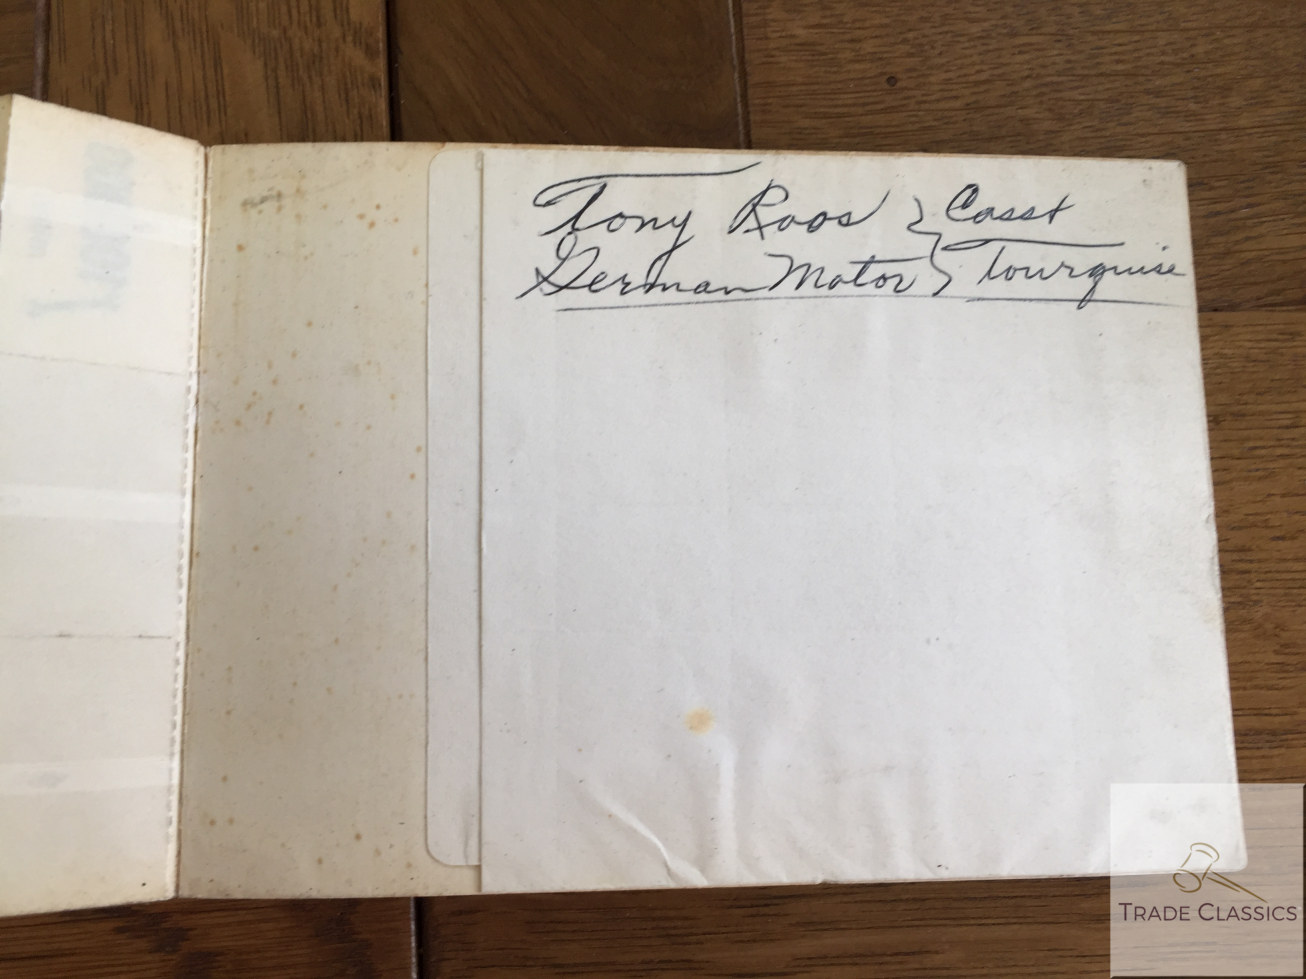 Tony Roos } Casst
German Motor } Tourquise
TRADE CLASSICS